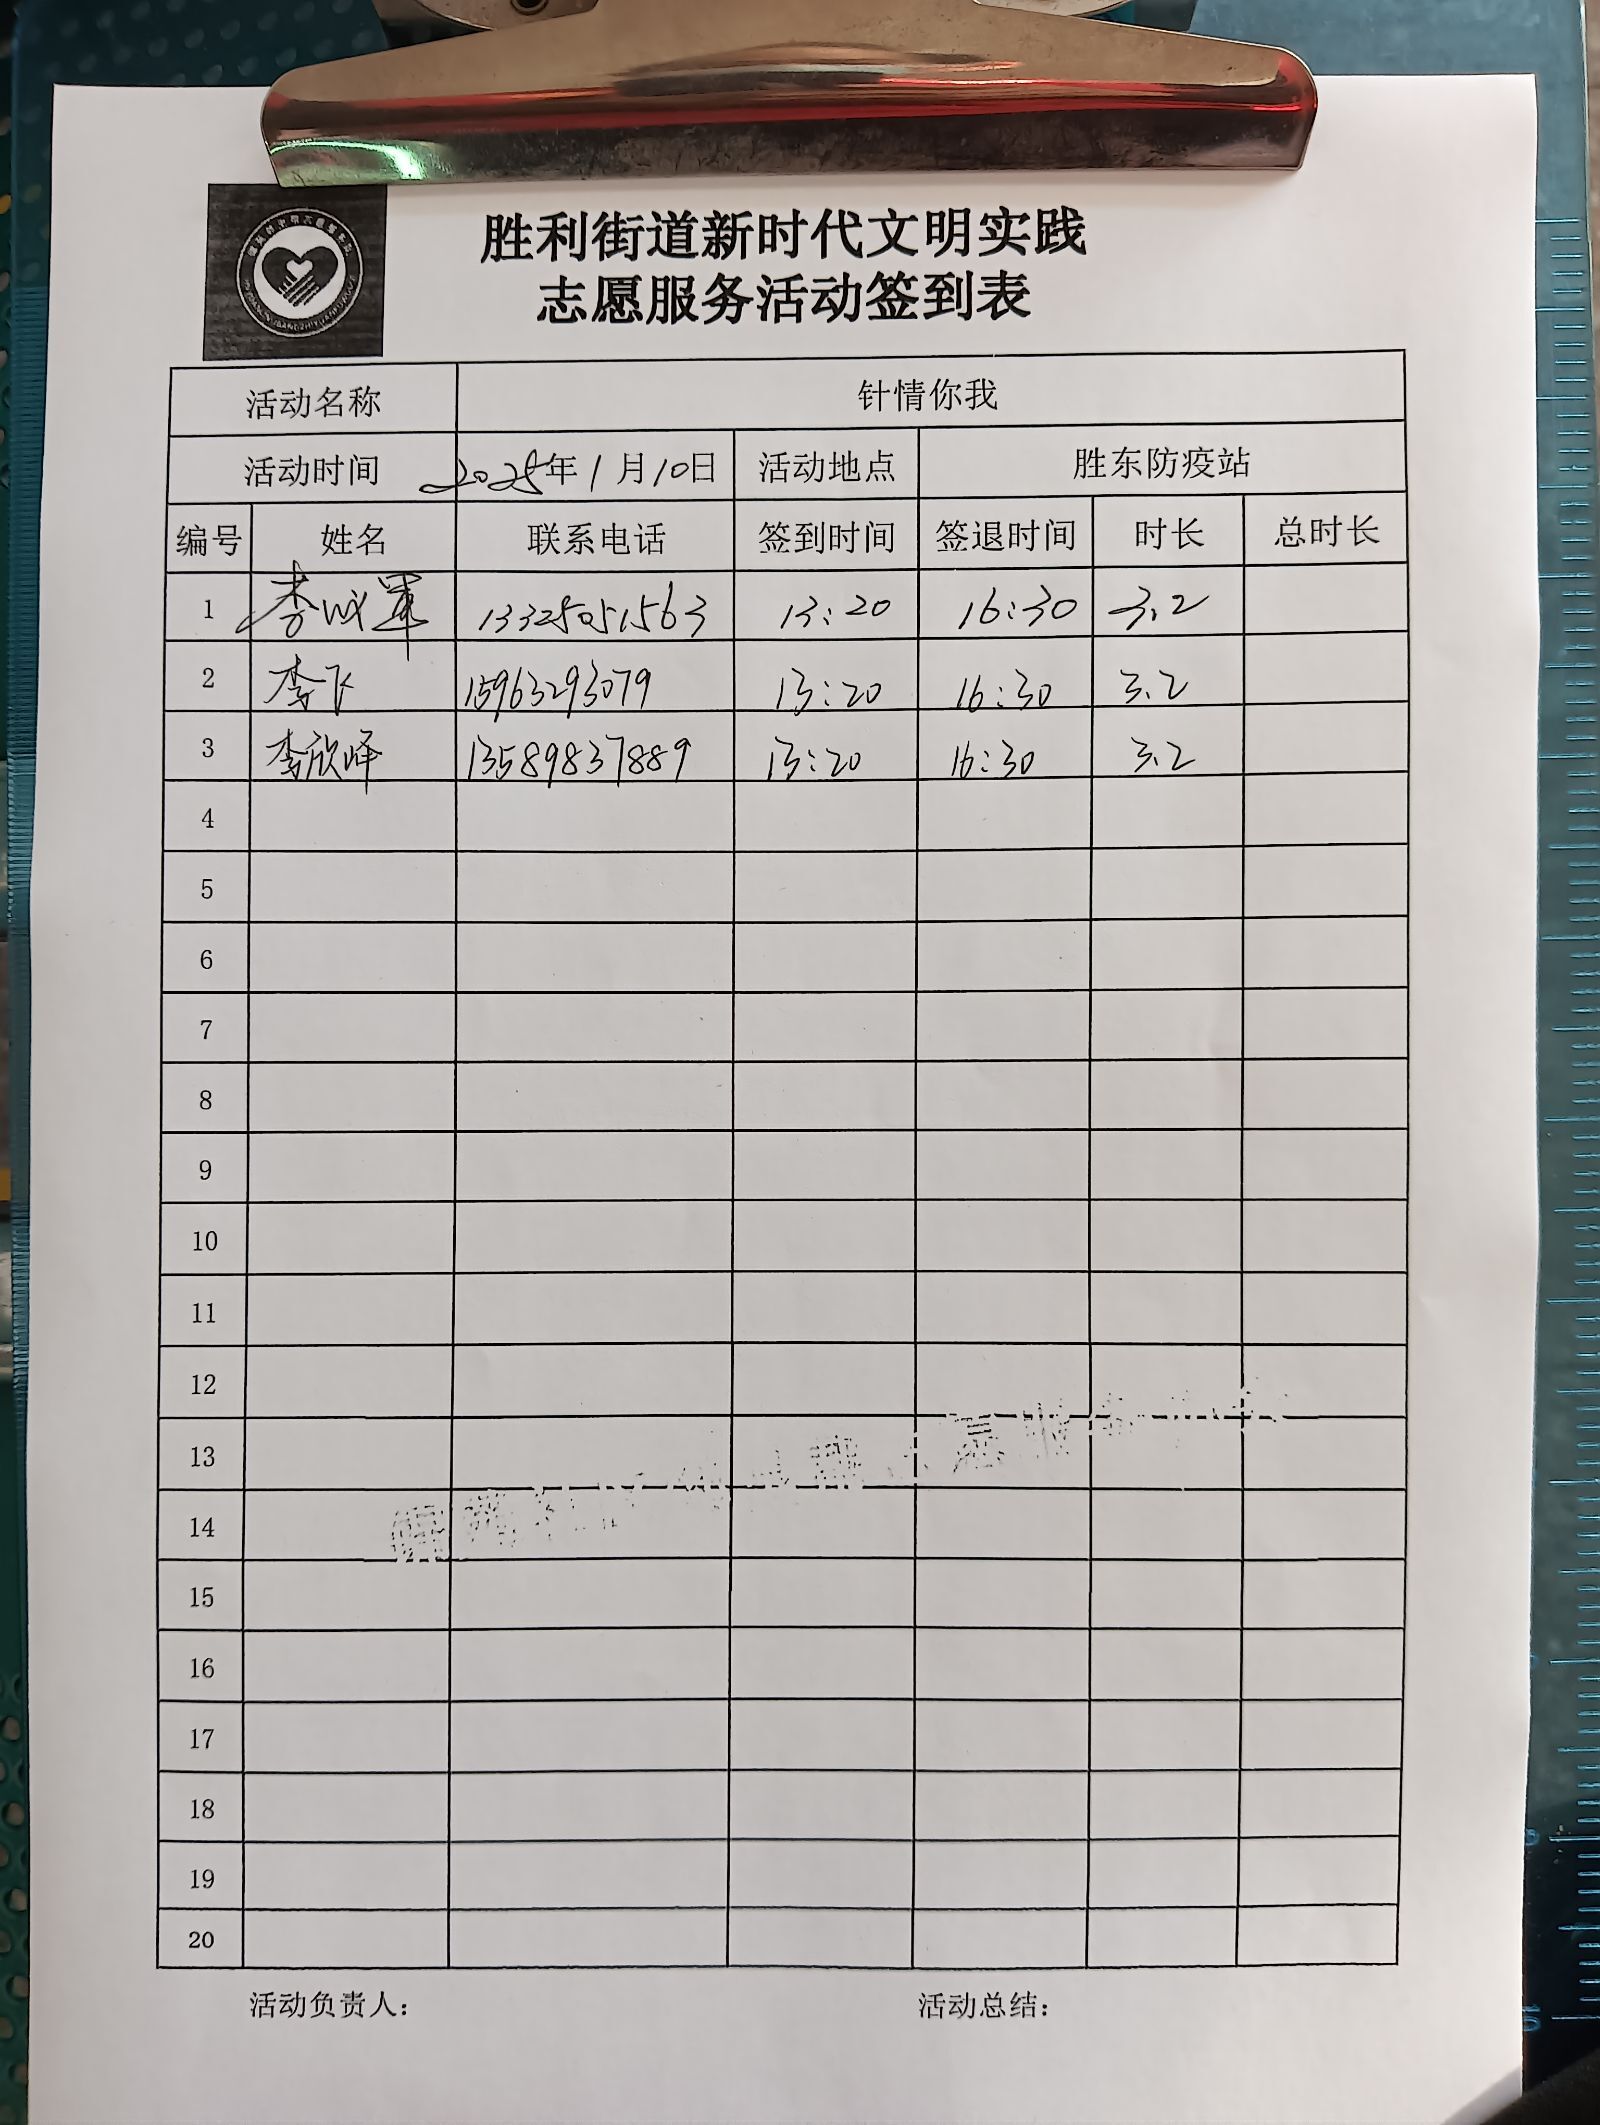 胜利街道新时代文明实践
志愿服务活动签到表
活动名称 针情你我
活动时间 2025年1月10日 活动地点 胜东防疫站
编号 姓名 联系电话 签到时间 签退时间 时长 总时长
1 李成军 13325051563 13:20 16:30 3.2
2 李飞 15963293079 13:20 16:30 3.2
3 李欣峰 13589837889 13:20 16:30 3.2
4
5
6
7
8
9
10
11
12
13
14
15
16
17
18
19
20
活动负责人： 活动总结：